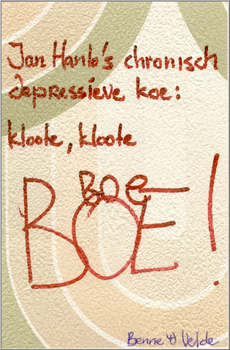 Jan Hanlo's chronisch
depressieve koe:
kloote, kloote
BOE
BOE!
Benne vd Velde